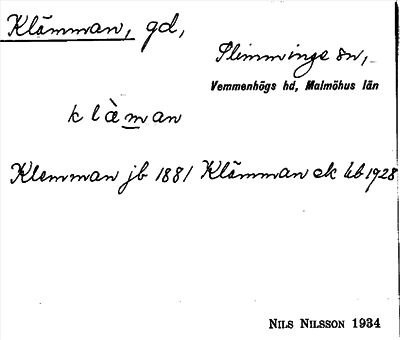 Klämman, gd,
Slimminge sn,
Vemmenhögs hd, Malmöhus län
klàman
Klemman jb 1881 Klämman ek kb 1928
NILS NILSSON 1934